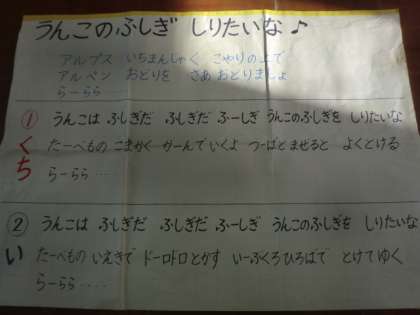 うんこのふしぎ しりたいな♪
アルプス いちまんじゃく こやりの上で
アルペン おどりを さあ おどりましょ
らーらら ・・・・
① うんこは ふしぎだ ふしぎだ ふーしぎ うんこのふしぎを しりたいな
くち たーべもの こまかく かーんで いくよ つーばと まぜると よくとける
らーらら ・・・
② うんこは ふしぎだ ふしぎだ ふーしぎ うんこのふしぎを しりたいな
い たーべもの いえきで ドーロドロ とかす いーぶくろ ひろばで とけて ゆく
らーらら ・・・・